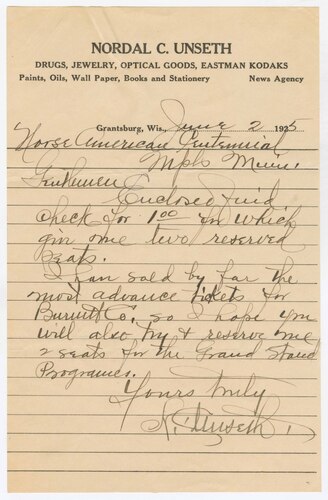 NORDAL C. UNSETH
DRUGS, JEWELRY, OPTICAL GOODS, EASTMAN KODAKS
Paints, Oils, Wall Paper, Books and Stationery News Agency
Grantsburg, Wis., June 2 1925
Norse American Centennial
Mpls Minn.
Gentlemen
Enclosed find
check for 1.00 for which
give me two reserved
seats.
I have sold by far the
most advance tickets for
Burnett Co, so I hope you
will also try & reserve me
2 seats for the Grand Stand
Programes.
Yours truly
N. C. Unseth.